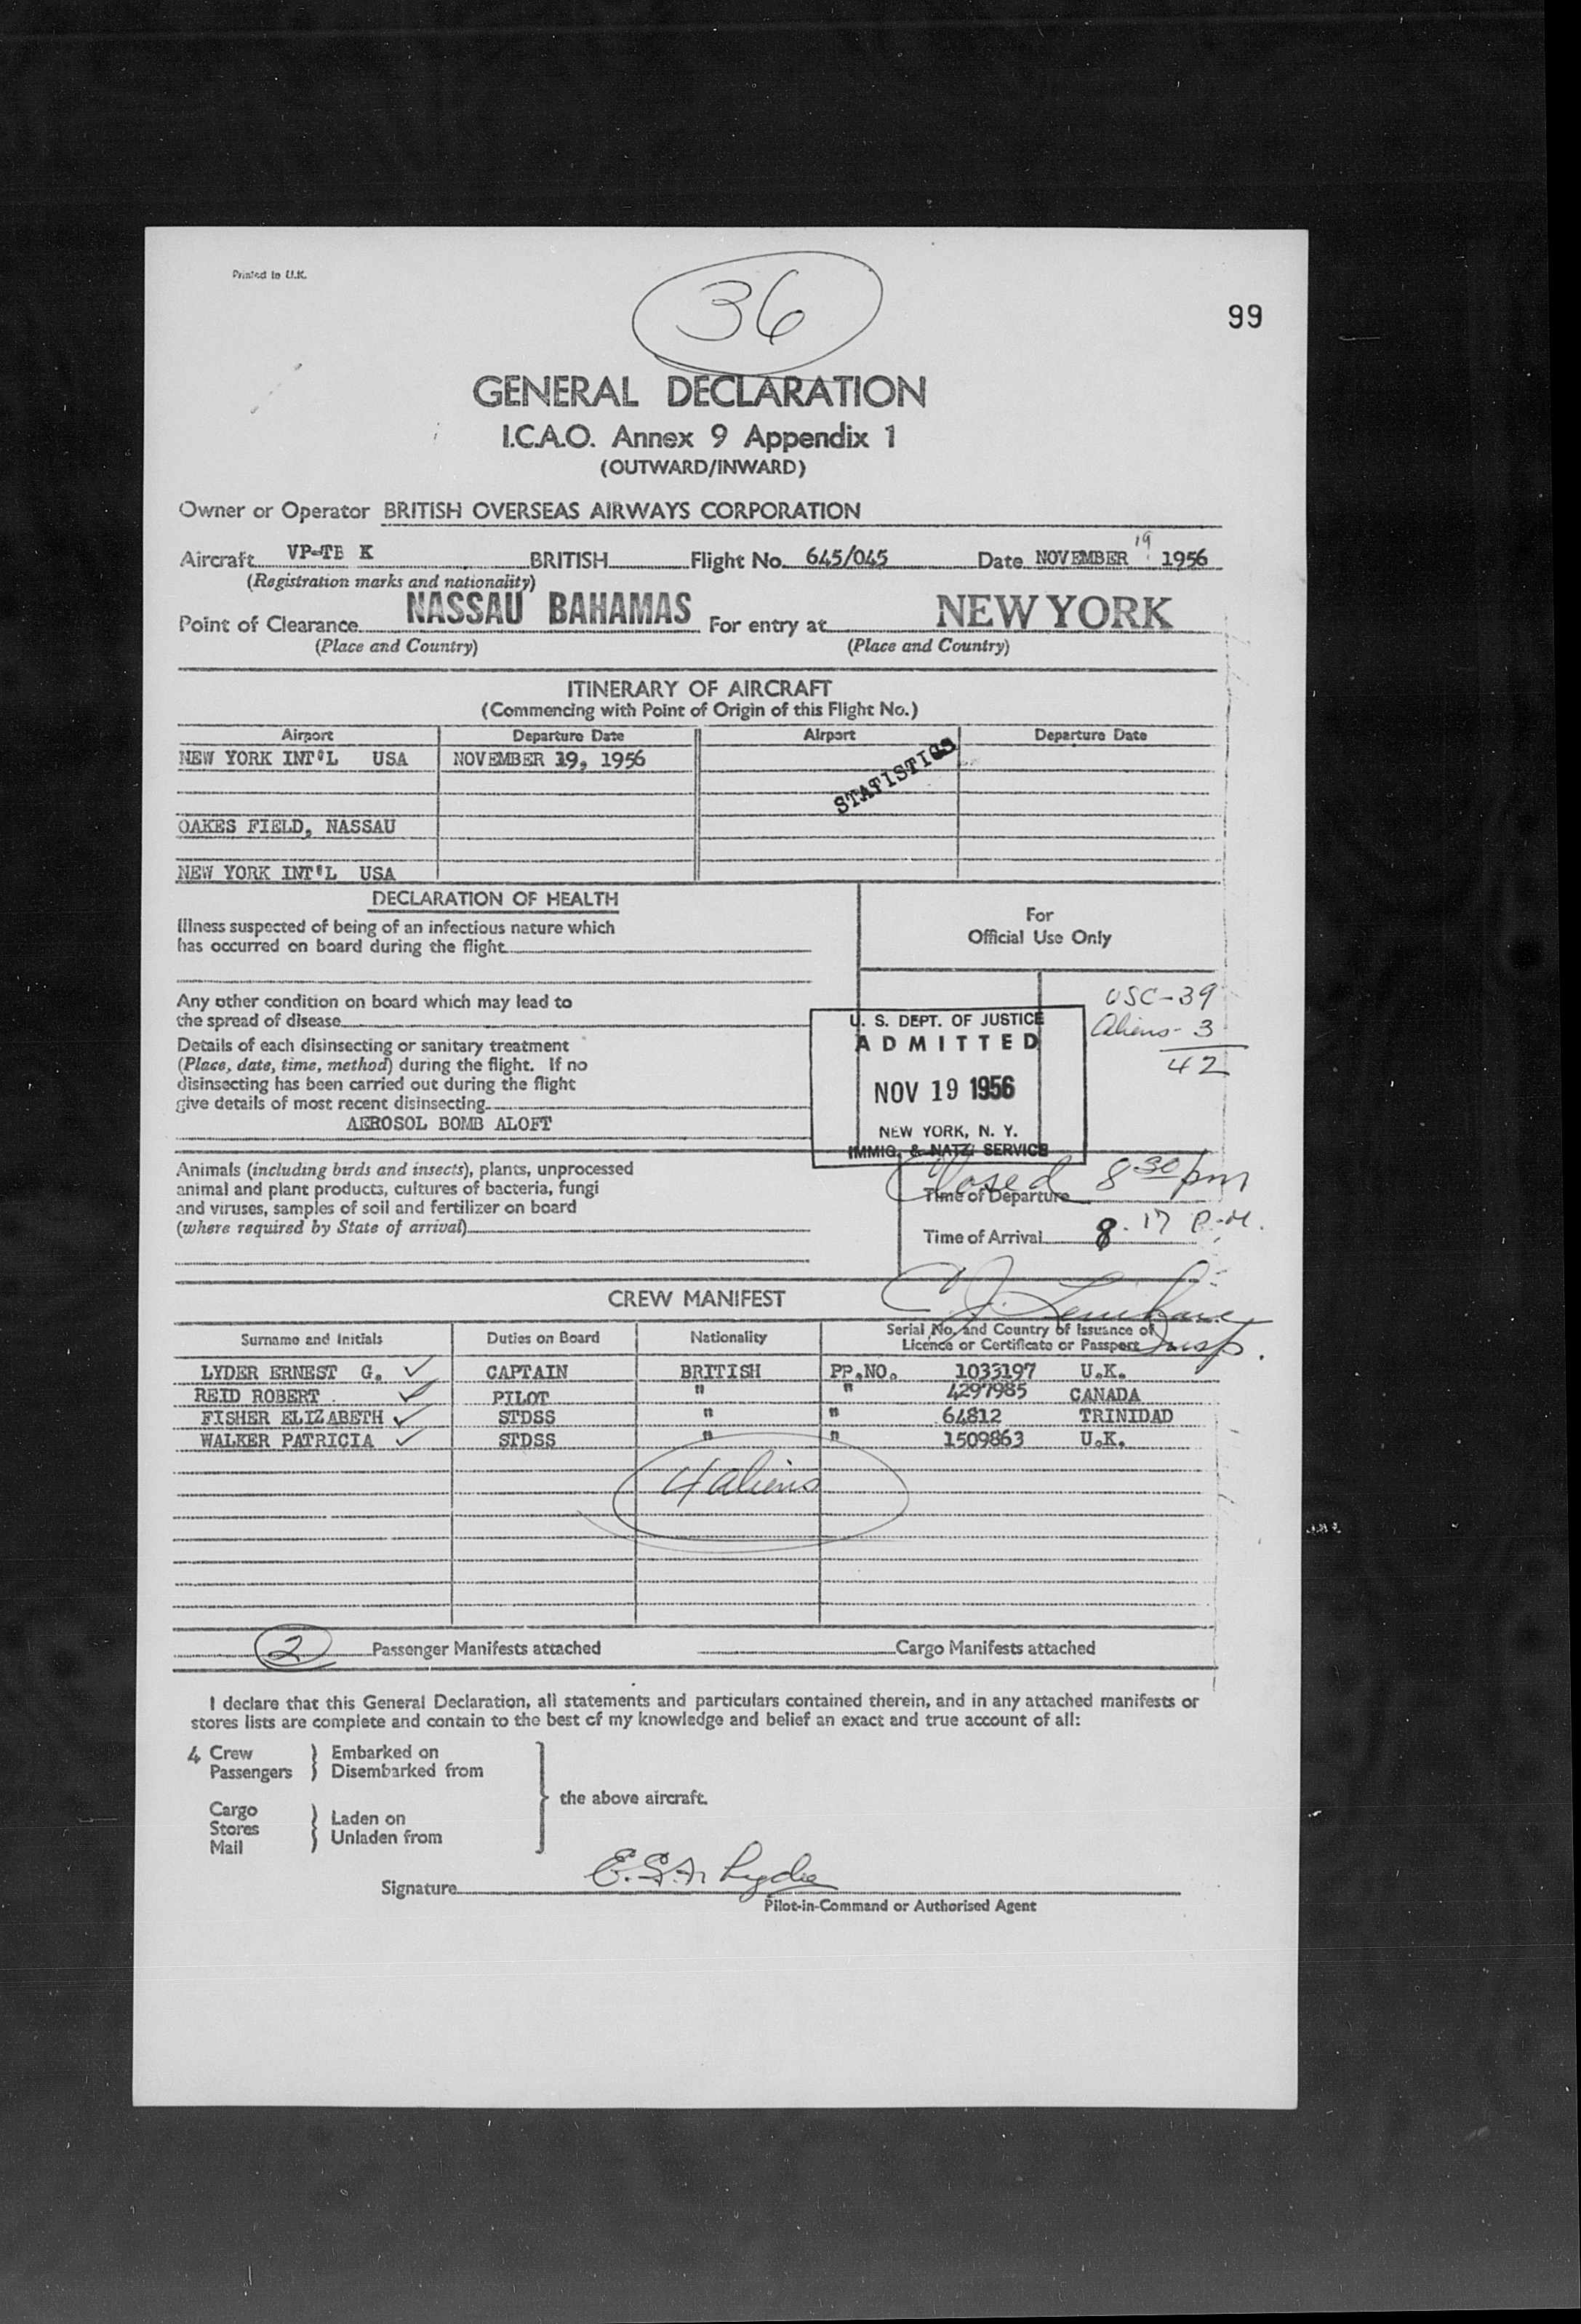 Printed in U.K.
36
99
GENERAL DECLARATION
I.C.A.O. Annex 9 Appendix 1
(OUTWARD/INWARD)
Owner or Operator BRITISH OVERSEAS AIRWAYS CORPORATION
Aircraft VP-TB K BRITISH Flight No. 645/045 Date NOVEMBER 19 1956
(Registration marks and nationality)
Point of Clearance NASSAU BAHAMAS For entry at NEW YORK
(Place and Country) (Place and Country)
ITINERARY OF AIRCRAFT
(Commencing with Point of Origin of this Flight No.)
Airport Departure Date Airport Departure Date
NEW YORK INT'L USA NOVEMBER 19, 1956
STATISTICS
OAKES FIELD, NASSAU
NEW YORK INT'L USA
DECLARATION OF HEALTH
Illness suspected of being of an infectious nature which
has occurred on board during the flight
For
Official Use Only
Any other condition on board which may lead to
the spread of disease
Details of each disinsecting or sanitary treatment
(Place, date, time, method) during the flight. If no
disinsecting has been carried out during the flight
give details of most recent disinsecting
AEROSOL BOMB ALOFT
U. S. DEPT. OF JUSTICE
ADMITTED
NOV 19 1956
NEW YORK, N. Y.
IMMIG. & NATZ. SERVICE
USC-39
Aliens-3
42
Animals (including birds and insects), plants, unprocessed
animal and plant products, cultures of bacteria, fungi
and viruses, samples of soil and fertilizer on board
(where required by State of arrival)
Closed 8 30 pm
Time of Departure
Time of Arrival 8.17 P.M.
CREW MANIFEST
Insp.
Surname and Initials Duties on Board Nationality Serial No. and Country of Issuance of
Licence or Certificate or Passport
LYDER ERNEST G. ✓ CAPTAIN BRITISH PP.NO. 1033197 U.K.
REID ROBERT ✓ PILOT " " 4297985 CANADA
FISHER ELIZABETH ✓ STDSS " " 64812 TRINIDAD
WALKER PATRICIA ✓ STDSS " " 1509863 U.K.
4 aliens
2 Passenger Manifests attached Cargo Manifests attached
I declare that this General Declaration, all statements and particulars contained therein, and in any attached manifests or
stores lists are complete and contain to the best of my knowledge and belief an exact and true account of all:
4 Crew Embarked on
Passengers Disembarked from
the above aircraft.
Cargo
Stores Laden on
Mail Unladen from
Signature E.G.A. Lyder
Pilot-in-Command or Authorised Agent